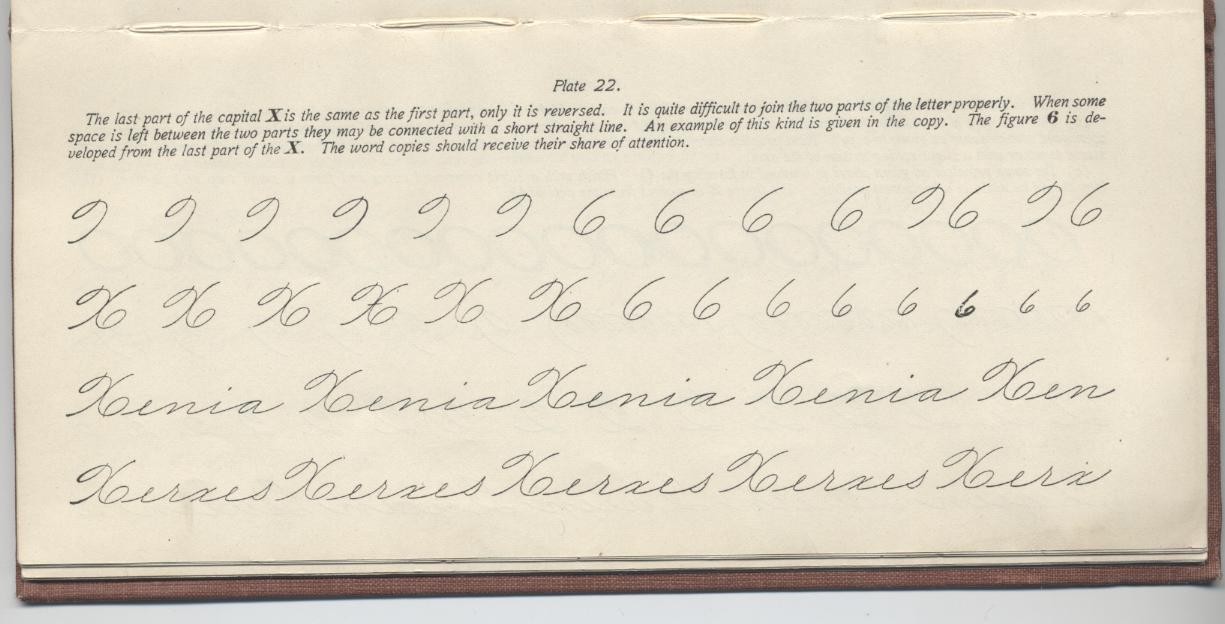 Plate 22.
The last part of the capital X is the same as the first part, only it is reversed. It is quite difficult to join the two parts of the letter properly. When some
space is left between the two parts they may be connected with a short straight line. An example of this kind is given in the copy. The figure 6 is de-
veloped from the last part of the X. The word copies should receive their share of attention.
9 9 9 9 9 9 6 6 6 6 96 96
X X X X X X 6 6 6 6 6 6 6 6
Xenia Xenia Xenia Xenia Xen
Xerxes Xerxes Xerxes Xerxes Xerx